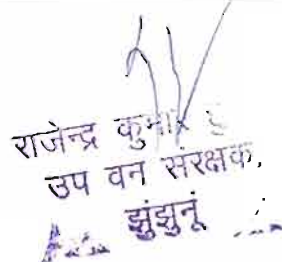 राजेन्द्र कुमार
उप वन संरक्षक,
झुंझुनूं